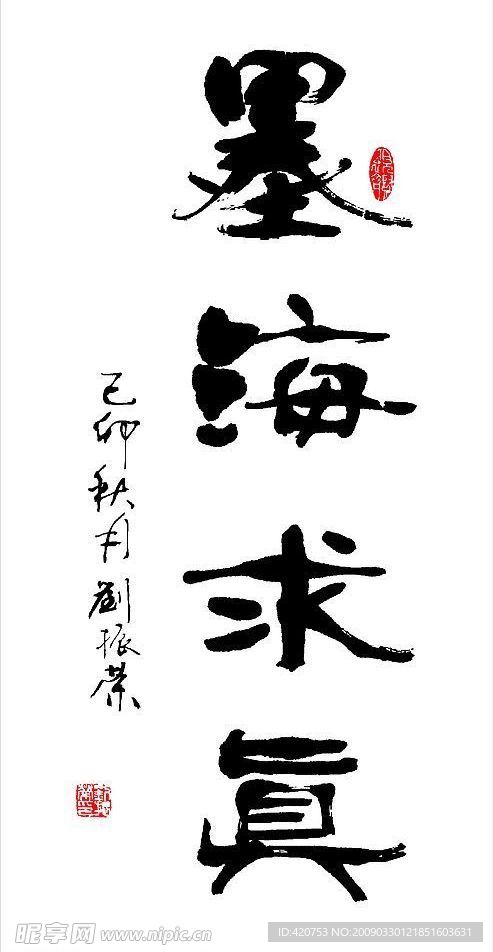 墨海求真
己卯秋月劉振荣
昵享网 www.nipic.cn
ID:420753 NO:20090330121851603631